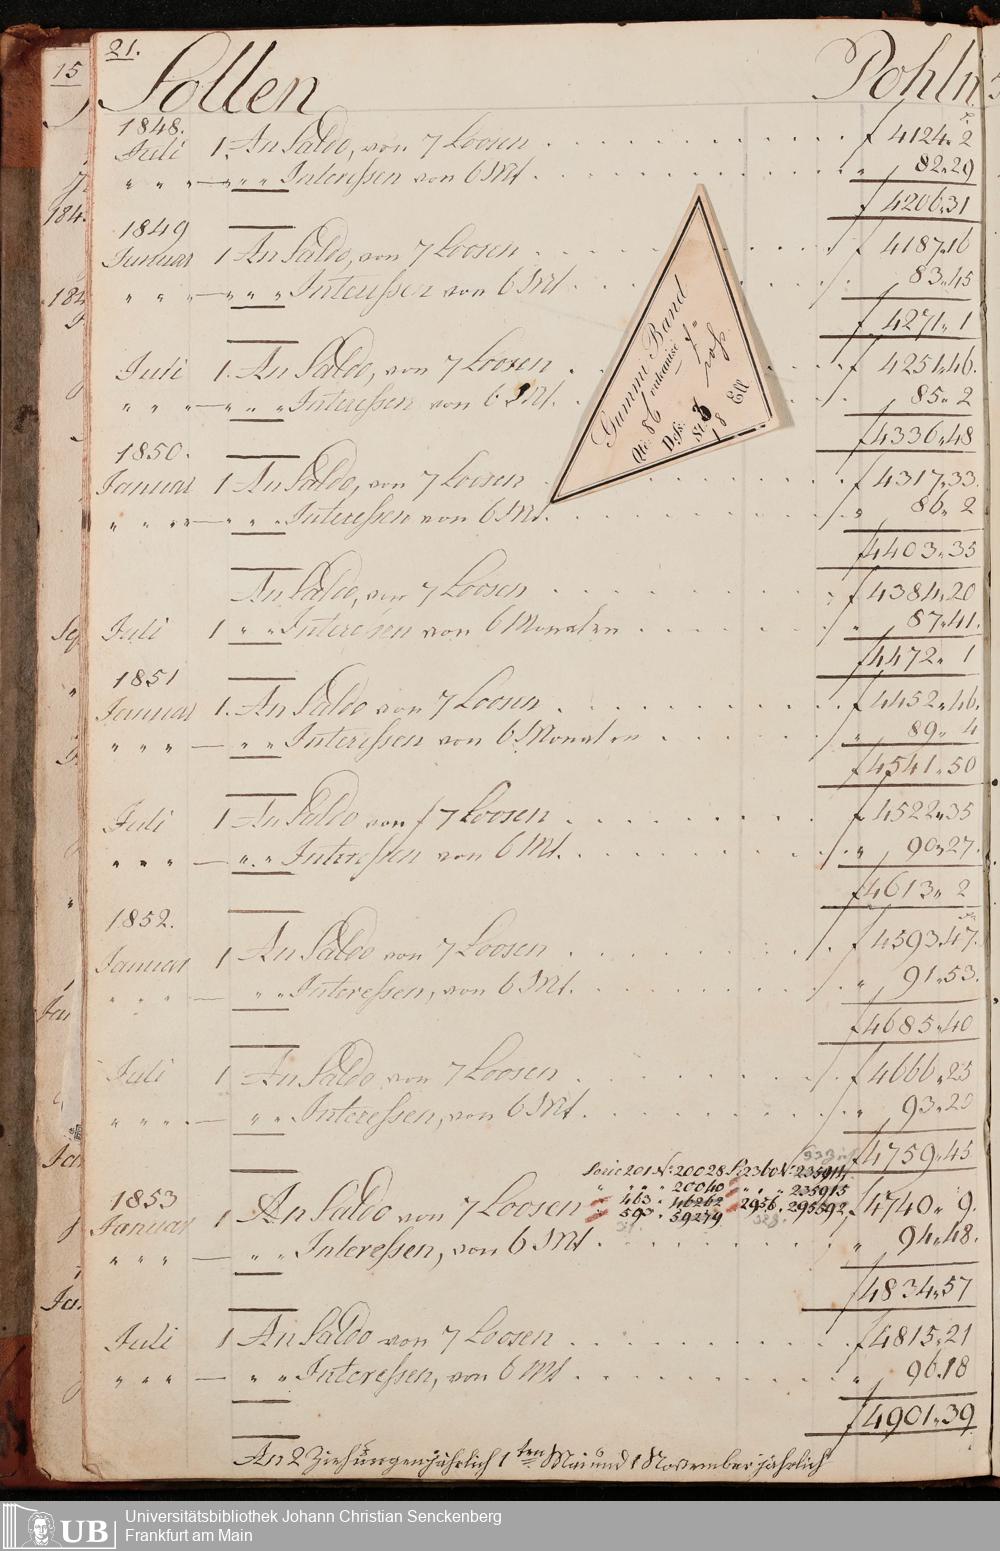 15
21.
Sollen
Pohln
1848.
Juli 1. An Saldo, von 7 Loosen f 4124 " 2
" " " — " " " Interessen von 6 Mt " 82 " 29
f 4206 " 31
184.
1849
Januar 1 An Saldo, von 7 Loosen f 4187 " 16
" " " — " " " Interessen von 6 Mt " 83 " 45
f 4271 " 1
Juli 1. An Saldo, von 7 Loosen f 4251 " 46.
" " " — " " " Interessen von 6 Mt. 85 " 2
f 4336 " 48
Gummi Band
Qté: 86 vulcanisé
Dess:
St. 3
18 Ell
1850.
Januar 1 An Saldo, von 7 Loosen f 4317 " 33.
" " " " — " " " Interessen von 6 Mt. " 86 " 2
f 4403 " 35
An Saldo, von 7 Loosen f 4384 " 20
Juli 1 " " Interessen von 6 Monaten " 87 " 41.
f 4472 " 1
1851
Januar 1. An Saldo von 7 Loosen f 4452 " 46.
" " " — " " Interessen von 6 Monaten " 89 " 4
f 4541 " 50
Juli 1 An Saldo von 7 Loosen f 4522 " 35
" " " — " " Interessen von 6 Mt. " 90 " 27.
f 4613 " 2
1852.
Januar 1 An Saldo von 7 Loosen f 4593 " 47.
" " " — " " Interessen, von 6 Mt. " 91 " 53.
f 4685 " 40
Juli 1 An Saldo von 7 Loosen f 4666 " 23
" " " " — " " Interessen, von 6 Mt. " 93 " 20
f 4759 " 43
Serie 201 N: 20028 S. 2360 N: 235911,
" " " " 20040 " " " 235915
" 463 " 46262 2956. 295592,
" 593 " 59279
1853
Januar 1 An Saldo von 7 Loosen f 4740 " 9.
" " " — " " Interessen, von 6 Mt " 94 " 48.
f 4834 " 57
Juli 1 An Saldo von 7 Loosen f 4815 " 21
" " " — " " Interessen, von 6 Mt " 96 " 18
f 4901 " 39
An 2 Ziehungen jährlich 1ten Mai und 1 November jährlich
Universitätsbibliothek Johann Christian Senckenberg
UB Frankfurt am Main